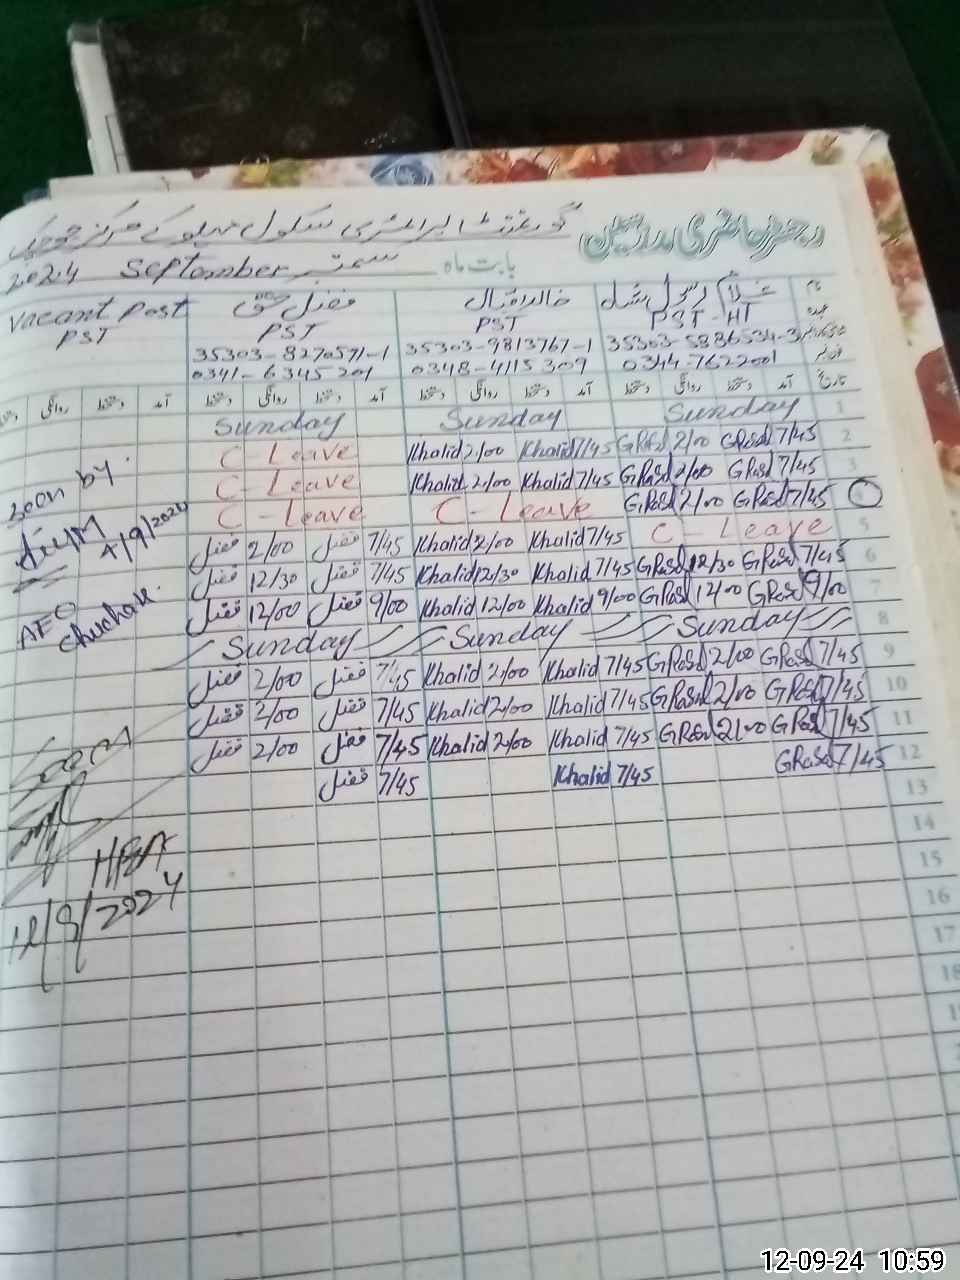 رجسٹر حاضری مدرسین گورنمنٹ پرائمری سکول مرکز چوچک
بابت ماہ ستمبر September 2024
نام غلام رسول شاہد خالد اقبال فضل حق Vacant Post
عہدہ PST-HT PST PST PST
35303-5886534-3 35303-9813767-1 35303-8270571-1
0344-7622001 0348-4115309 0341-6345201
تاریخ آمد دستخط روانگی دستخط آمد دستخط روانگی دستخط آمد دستخط روانگی دستخط آمد دستخط روانگی دستخط
1 Sunday Sunday Sunday
2 7/45 GRasd 2/00 GRasd 7/45 Khalid 2/00 Khalid C-Leave
3 7/45 GRasd 2/00 GRasd 7/45 Khalid 2/00 Khalid C-Leave
4 7/45 GRasd 2/00 GRasd C-Leave C-Leave
5 C-Leave 7/45 Khalid 2/00 Khalid 7/45 فضل 2/00 فضل
6 7/45 GRasd 12/30 GRasd 7/45 Khalid 12/30 Khalid 7/45 فضل 12/30 فضل
7 9/00 GRasd 12/00 GRasd 9/00 Khalid 12/00 Khalid 9/00 فضل 12/00 فضل
8 Sunday Sunday Sunday
9 7/45 GRasd 2/00 GRasd 7/45 Khalid 2/00 Khalid 7/45 فضل 2/00 فضل
10 7/45 GRasd 2/00 GRasd 7/45 Khalid 2/00 Khalid 7/45 فضل 2/00 فضل
11 7/45 GRasd 2/00 GRasd 7/45 Khalid 2/00 Khalid 7/45 فضل 2/00 فضل
12 7/45 GRasd 7/45 Khalid 7/45 فضل
13
14
15
16
17
18
seen by.
4/9/2024
AEO
Chuchak.
Seen
12/9/2024
12-09-24 10:59